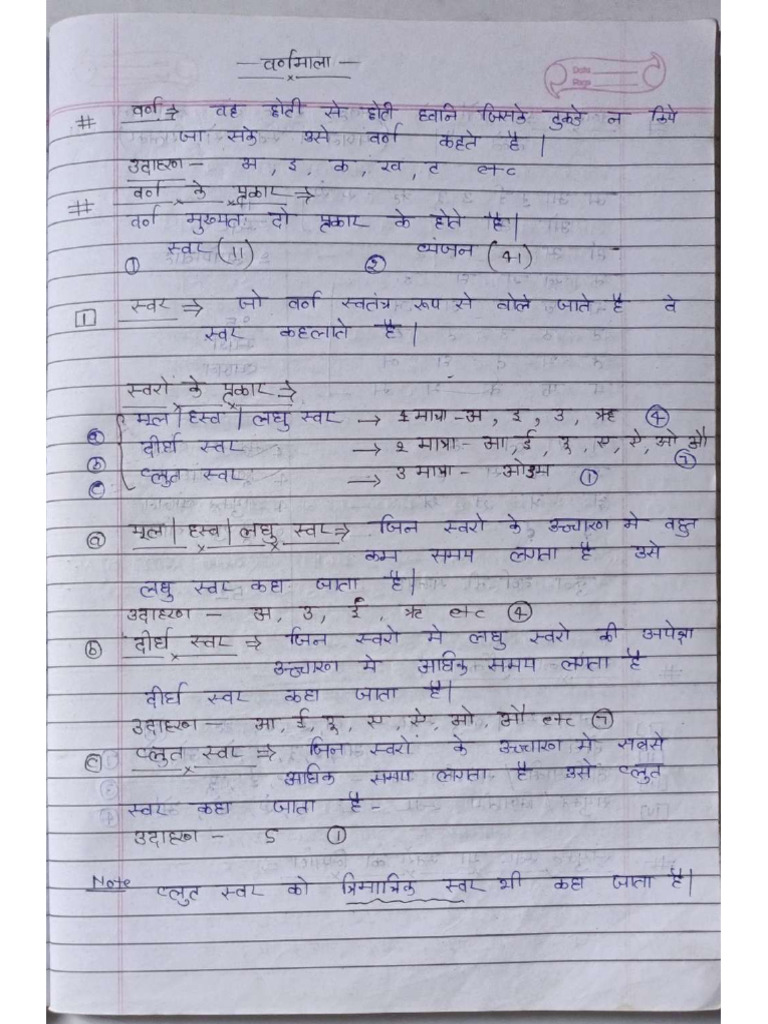 - वर्णमाला -
Date
Page
# वर्ण ⇒ वह छोटी से छोटी ध्वनि जिसके टुकडे न किये
जा सके उसे वर्ण कहते है |
उदाहरण - अ, इ, क, ख, ट etc
# वर्ण के प्रकार ⇒
वर्ण मुख्यतः दो प्रकार के होते है |
① स्वर (11) ② व्यंजन (41)
1 स्वर ⇒ जो वर्ण स्वतंत्र रूप से बोले जाते है वे
स्वर कहलाते है |
स्वरों के प्रकार ⇒
ⓐ मूल | हस्व | लघु स्वर → 1 मात्रा - अ, इ, उ, ऋ ④
ⓑ दीर्घ स्वर → 2 मात्रा - आ, ई, ऊ, ए, ऐ, ओ औ ⑦
ⓒ प्लुत स्वर → 3 मात्रा - ओइम ①
ⓐ मूल | हस्व | लघु स्वर ⇒ जिन स्वरो के उच्चारण मे बहुत
कम समय लगता है उसे
लघु स्वर कहा जाता है |
उदाहरण - अ, उ, ई, ऋ etc ④
ⓑ दीर्घ स्वर ⇒ जिन स्वरो मे लघु स्वरो की अपेक्षा
उच्चारण मे अधिक समय लगता है
दीर्घ स्वर कहा जाता है |
उदाहरण - आ, ई, ऊ, ए, ऐ, ओ, औ etc ⑦
ⓒ प्लुत स्वर ⇒ जिन स्वरों के उच्चारण मे सबसे
अधिक समय लगता है उसे प्लुत
स्वर कहा जाता है -
उदाहरण - ऽ ①
Note प्लुत स्वर को त्रिमात्रिक स्वर भी कहा जाता है |